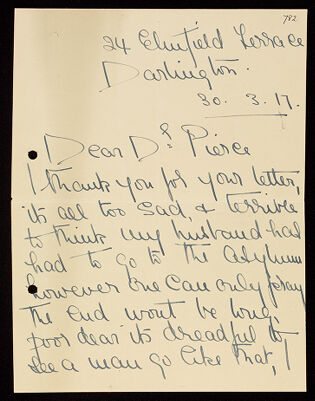 782
24 Elmfield Terrace
Darlington.
30. 3. 17.
Dear Dr Pierce
I thank you for your letter,
its all too sad, & terrible
to think my husband has
had to go to the Asylum
however one can only pray
the end wont be long,
poor dear its dreadful to
see a man go like that, I